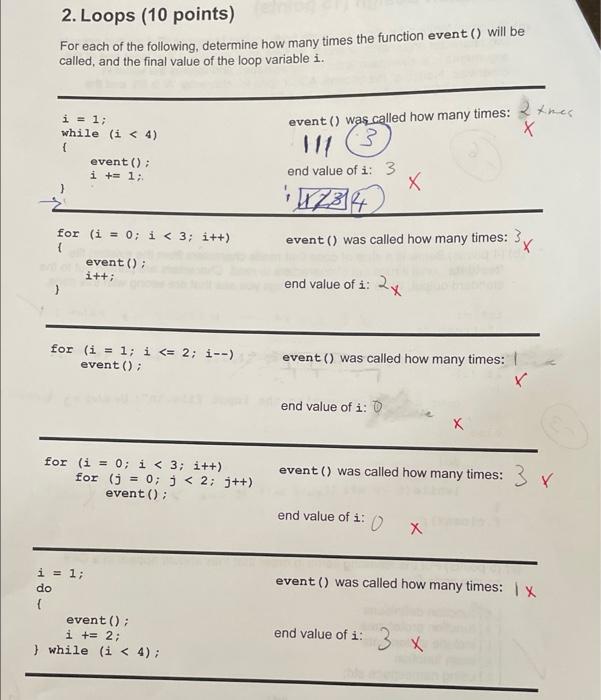 2. Loops (10 points)
For each of the following, determine how many times the function event () will be
called, and the final value of the loop variable i.
i = 1;
while (i < 4)
{
event();
i += 1;
}
event () was called how many times: 2 times
X
3
end value of i: 3
X
i 1 2 3 4
for (i = 0; i < 3; i++)
{
event();
i++;
}
event () was called how many times: 3
X
end value of i: 2
X
for (i = 1; i <= 2; i--)
event();
event () was called how many times: 1
X
end value of i: 0
X
for (i = 0; i < 3; i++)
for (j = 0; j < 2; j++)
event();
event () was called how many times: 3
X
end value of i: 0
X
i = 1;
do
{
event();
i += 2;
} while (i < 4);
event () was called how many times: 1 X
end value of i: 3 X